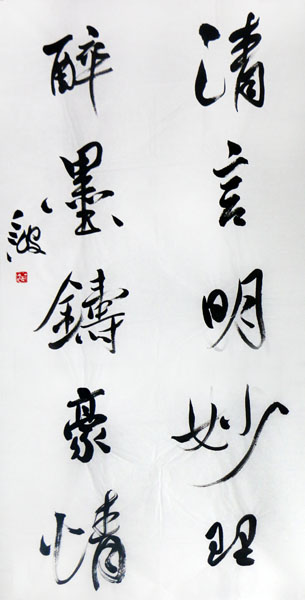 清言明妙理
醉墨鑄豪情